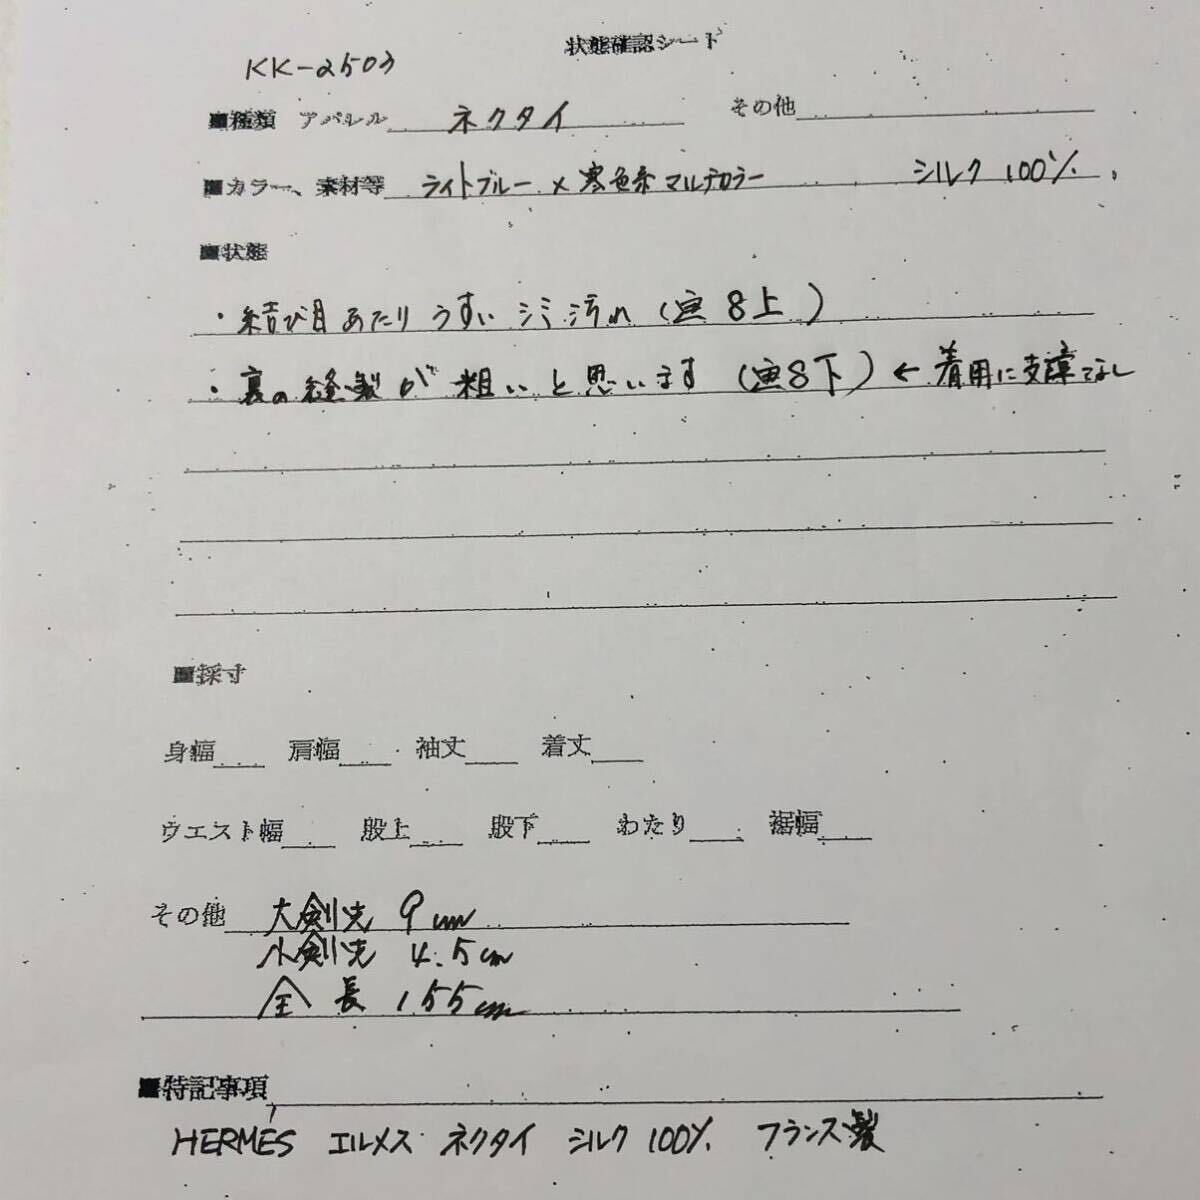 状態確認シート
KK-2503
■種類 アパレル ネクタイ その他
■カラー、素材等 ライトブルー×寒色系マルチカラー シルク100%
■状態
・結び目あたりうすいシミ汚れ(画8上)
・裏の縫製が粗いと思います(画8下)←着用に支障なし
■採寸
身幅 肩幅 袖丈 着丈
ウエスト幅 股上 股下 わたり 裾幅
その他 大剣先 9cm
小剣先 4.5cm
全長 155cm
■特記事項
HERMES エルメス ネクタイ シルク100% フランス製